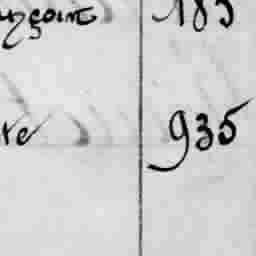 nçoint 183
re 935